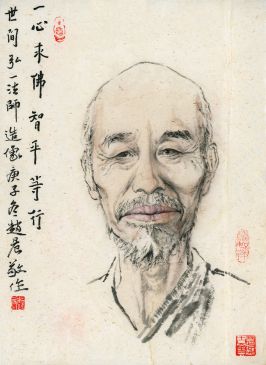 一心求佛智平等行
世間弘一法師造像庚子冬趙晨敬作